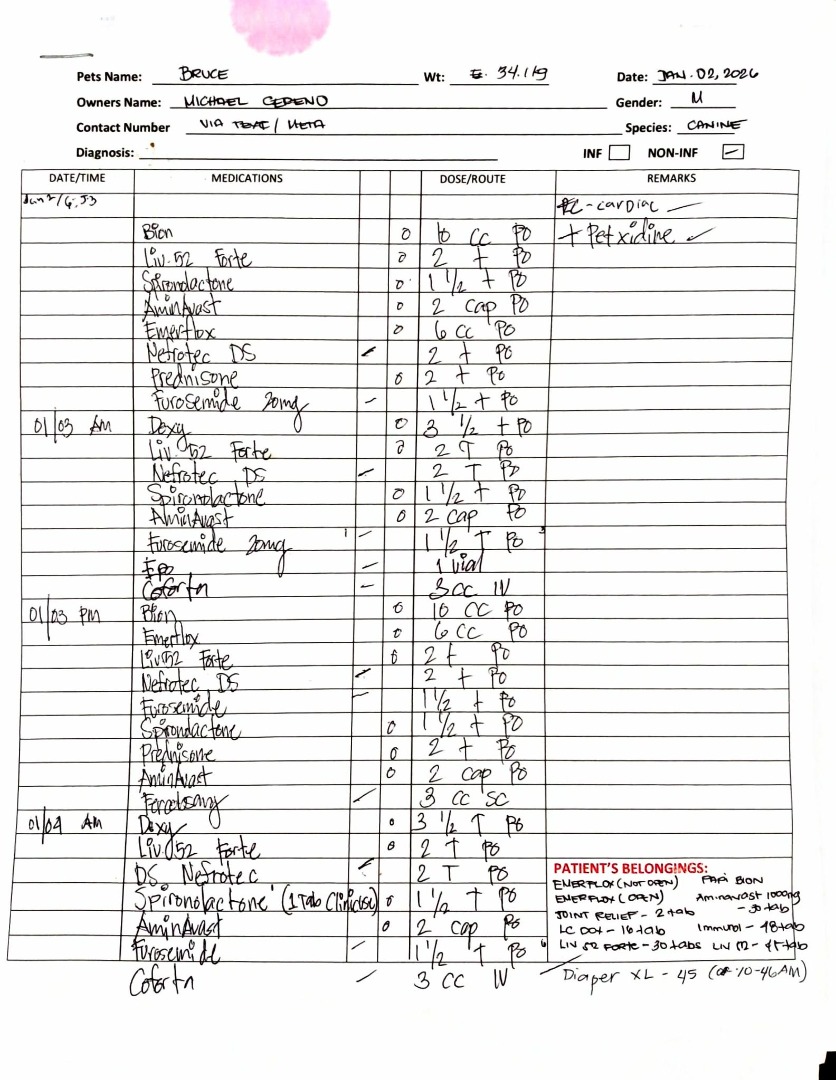 Pets Name: BRUCE Wt: 34.1 kg Date: JAN. 02, 2026
Owners Name: MICHAEL CEDENO Gender: M
Contact Number VIA TEXT / META Species: CANINE
Diagnosis: INF NON-INF
DATE/TIME MEDICATIONS DOSE/ROUTE REMARKS
Jan 2/6:53 - cardiac
Bion 0 10 cc Po + Petxidine
Liv.52 Forte 0 2 t Po
Spironolactone 0 1 1/2 t Po
AminAvast 0 2 cap Po
Emerflox 0 6 cc Po
Nefrotec DS 2 t Po
Prednisone 0 2 t Po
Furosemide 20mg 1 1/2 t Po
01/03 AM Doxy 0 3 1/2 t Po
Liv.52 Forte 0 2 T Po
Nefrotec DS 2 T Po
Spironolactone 0 1 1/2 t Po
AminAvast 0 2 cap Po
Furosemide 20mg 1 1/2 T Po
Epo 1 vial
Cofortn 3 cc IV
01/03 PM Bion 0 10 cc Po
Emerflox 0 6 cc Po
Liv.52 Forte 0 2 t Po
Nefrotec DS 2 t Po
Furosemide 1 1/2 t Po
Spirondactone 0 1 1/2 t Po
Prednisone 0 2 t Po
AminAvast 0 2 cap Po
3 cc SC
01/04 AM Doxy 0 3 1/2 T Po
Liv.52 Forte 0 2 T Po
DS Nefrotec 2 T Po
Spironolactone (1 Tab Clinic use) 0 1 1/2 T Po
AminAvast 0 2 cap Po
Furosemide 1 1/2 T Po
Cofortn 3 cc IV
PATIENT'S BELONGINGS:
EMERFLOX (NOT OPEN) PAPI BION
EMERFLOX (OPEN) Aminavast 1000mg - 30 tab
JOINT RELIEF - 2 tab
LC DOX - 16 tab Immunol - 48 tab
LIV 52 FORTE - 30 tabs LIV 52 - 45 tab
Diaper XL - 45 (10-46AM)